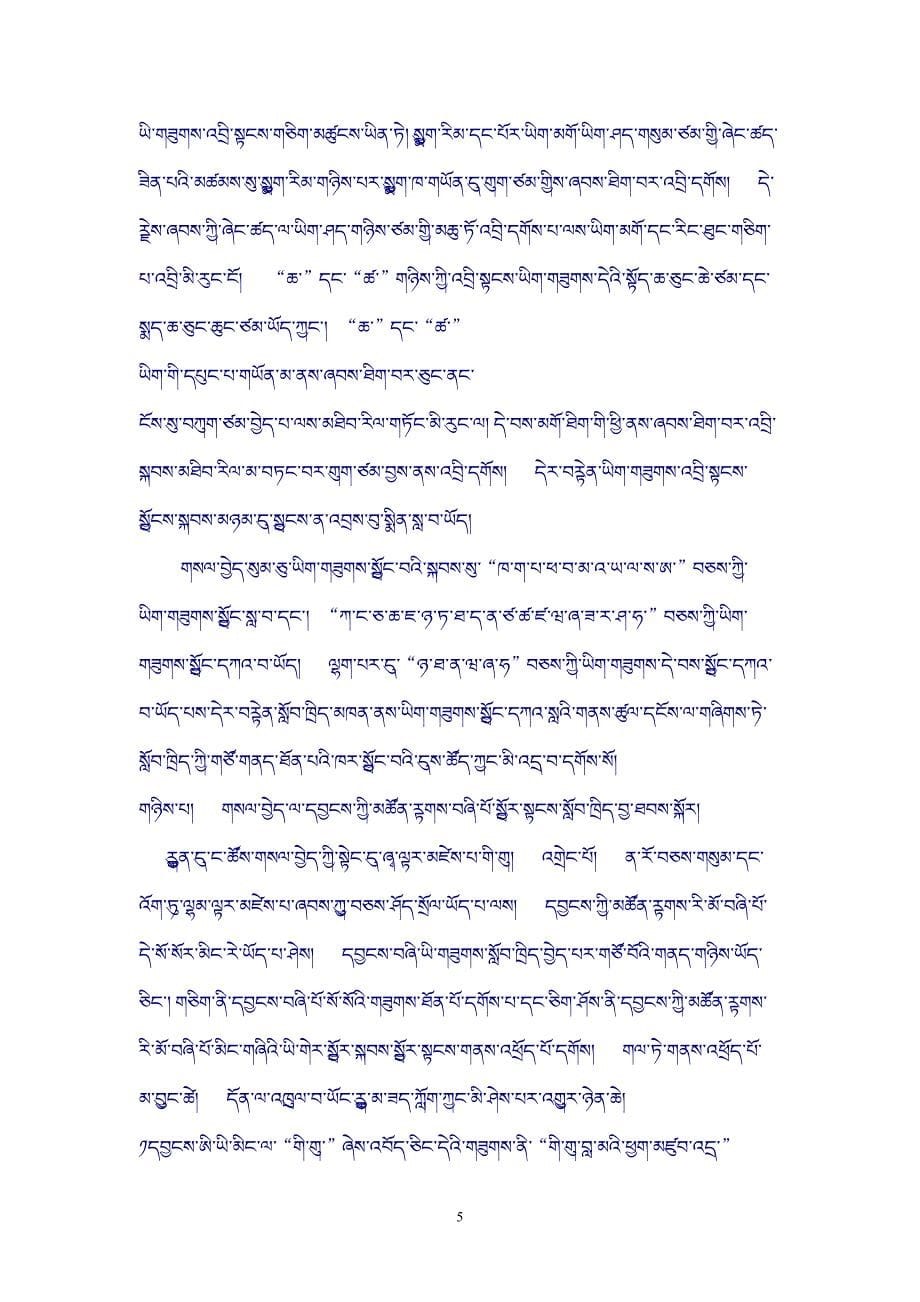 ཡི་གཟུགས་འབྲི་སྟངས་གཅིག་མཚུངས་ཡིན་ཏེ། སྨྱུག་རིམ་དང་པོར་ཡིག་མགོ་ཡིག་ཤད་གསུམ་ཙམ་གྱི་ཞེང་ཚད་
ཟིན་པའི་མཚམས་སུ་སྨྱུག་རིམ་གཉིས་པར་སྨྱུག་ཁ་གཡོན་དུ་གུག་ཙམ་གྱིས་ཞབས་ཐིག་བར་འབྲི་དགོས། དེ་
རྗེས་ཞབས་ཀྱི་ཞེང་ཚད་ལ་ཡིག་ཤད་གཉིས་ཙམ་གྱི་མཆུ་ཏོ་འབྲི་དགོས་པ་ལས་ཡིག་མགོ་དང་རིང་ཐུང་གཅིག་
པ་འབྲི་མི་རུང་ངོ། “ཆ་” དང་ “ཚ་” གཉིས་ཀྱི་འབྲི་སྟངས་ཡིག་གཟུགས་དེའི་སྟོད་ཆ་ཅུང་ཆེ་ཙམ་དང་
སྨད་ཆ་ཅུང་ཆུང་ཙམ་ཡོད་ཀྱང་། “ཆ་” དང་ “ཚ་”
ཡིག་གི་དཔུང་པ་གཡོན་མ་ནས་ཞབས་ཐིག་བར་ཅུང་ནང་
ངོས་སུ་བཀུག་ཙམ་བྱེད་པ་ལས་མཐིབ་རིལ་གཏོང་མི་རུང་ལ། དེ་བས་མགོ་ཐིག་གི་ཕྱི་ནས་ཞབས་ཐིག་བར་འབྲི་
སྐབས་མཐིབ་རིལ་མ་བཏང་བར་གུག་ཙམ་བྱས་ནས་འབྲི་དགོས། དེར་བརྟེན་ཡིག་གཟུགས་འབྲི་སྟངས་
སྦྱོངས་སྐབས་མཉམ་དུ་སྦྱངས་ན་འབྲས་བུ་སྨིན་སླ་བ་ཡོད།
གསལ་བྱེད་སུམ་ཅུ་ཡིག་གཟུགས་སྦྱོང་བའི་སྐབས་སུ་ “ཁ་ག་པ་ཕ་བ་མ་འ་ཡ་ལ་ས་ཨ་” བཅས་ཀྱི་
ཡིག་གཟུགས་སྦྱོང་སླ་བ་དང་། “ཀ་ང་ཅ་ཆ་ཇ་ཉ་ཏ་ཐ་ད་ན་ཙ་ཚ་ཛ་ཝ་ཞ་ཟ་ར་ཤ་ཧ་” བཅས་ཀྱི་ཡིག་
གཟུགས་སྦྱོང་དཀའ་བ་ཡོད། ལྷག་པར་དུ་ “ཉ་ཐ་ན་ཝ་ཞ་ཧ” བཅས་ཀྱི་ཡིག་གཟུགས་དེ་བས་སྦྱོང་དཀའ་
བ་ཡོད་པས་དེར་བརྟེན་སློབ་ཁྲིད་མཁན་ནས་ཡིག་གཟུགས་སྦྱོང་དཀའ་སླའི་གནས་ཚུལ་དངོས་ལ་གཞིགས་ཏེ་
སློབ་ཁྲིད་ཀྱི་གཙོ་གནད་ཐོན་པའི་ཁར་སྦྱོང་བའི་དུས་ཚོད་ཀྱང་མི་འདྲ་བ་དགོས་སོ།
གཉིས་པ། གསལ་བྱེད་ལ་དབྱངས་ཀྱི་མཚོན་རྟགས་བཞི་པོ་སྦྱོར་སྟངས་སློབ་ཁྲིད་བྱ་ཐབས་སྐོར།
རྒྱུན་དུ་ང་ཚོས་གསལ་བྱེད་ཀྱི་སྟེང་དུ་ཞྭ་ལྟར་མཛེས་པ་གི་གུ། འགྲེང་པོ། ན་རོ་བཅས་གསུམ་དང་
འོག་ཏུ་ལྷམ་ལྟར་མཛེས་པ་ཞབས་ཀྱུ་བཅས་ཤོད་སྲོལ་ཡོད་པ་ལས། དབྱངས་ཀྱི་མཚོན་རྟགས་རི་མོ་བཞི་པོ་
དེ་སོ་སོར་མིང་རེ་ཡོད་པ་ཤེས། དབྱངས་བཞི་ཡི་གཟུགས་སློབ་ཁྲིད་བྱེད་པར་གཙོ་བོའི་གནད་གཉིས་ཡོད་
ཅིང་། གཅིག་ནི་དབྱངས་བཞི་པོ་སོ་སོའི་གཟུགས་ཐོན་པོ་དགོས་པ་དང་ཅིག་ཤོས་ནི་དབྱངས་ཀྱི་མཚོན་རྟགས་
རི་མོ་བཞི་པོ་མིང་གཞིའི་ཡི་གེར་སྦྱོར་སྐབས་སྦྱོར་སྟངས་གནས་འཕྲོད་པོ་དགོས། གལ་ཏེ་གནས་འཕྲོད་པོ་
མ་བྱུང་ཚེ། དོན་ལ་འཁྲུལ་བ་ཡོང་རྒྱུ་མ་ཟད་ཀློག་ཀྱང་མི་ཤེས་པར་འགྱུར་ཉེན་ཆེ།
༡དབྱངས་ཨི་ཡི་མིང་ལ་ “གི་གུ་” ཞེས་འབོད་ཅིང་དེའི་གཟུགས་ནི་ “གི་གུ་བླ་མའི་ཕྱག་མཛུབ་འདྲ་”
5